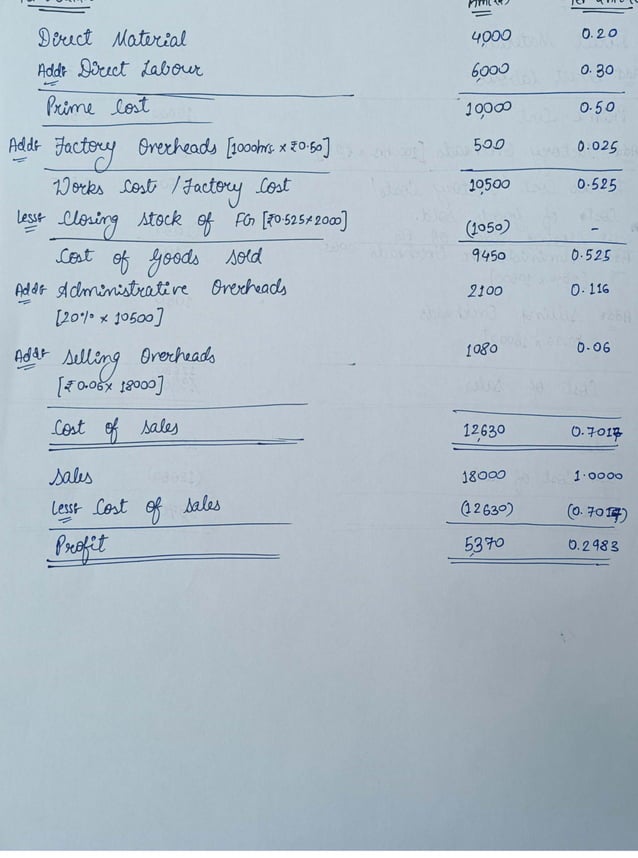 Direct Material 4,000 0.20
Add:- Direct Labour 6,000 0.30
Prime Cost 10,000 0.50
Add:- Factory Overheads [1000hrs. x ₹0.50] 500 0.025
Works Cost / Factory Cost 10,500 0.525
Less:- Closing stock of FG [₹0.525x2000] (1050) -
Cost of goods sold 9450 0.525
Add:- Administrative Overheads 2100 0.116
[20% x 10500]
Add:- Selling Overheads 1080 0.06
[₹0.06x 18000]
Cost of sales 12,630 0.7017
Sales 18000 1.0000
Less:- Cost of sales (12630) (0.7017)
Profit 5,370 0.2983